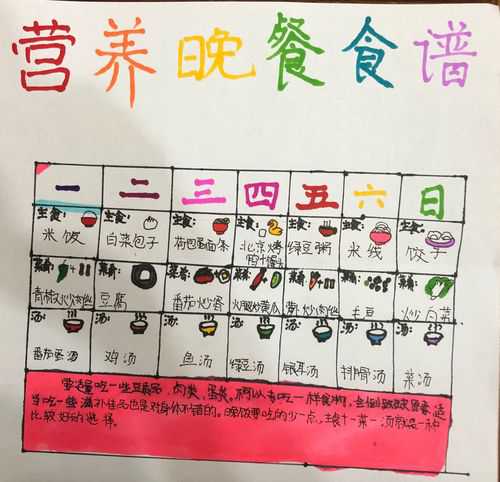 营养晚餐食谱
一 二 三 四 五 六 日
主食： 主食： 主食： 主食： 主食： 主食： 主食：
米饭 白菜包子 荷包蛋面条 北京烤鸭+馒头 绿豆粥 米线 饺子
菜肴： 菜肴： 菜肴： 菜肴： 菜肴： 菜肴： 菜肴：
青椒炒肉丝 豆腐 番茄炒蛋 火腿炒黄瓜 炒肉丝 土豆 炒白菜
汤： 汤： 汤： 汤： 汤： 汤： 汤：
番茄蛋汤 鸡汤 鱼汤 绿豆汤 银耳汤 排骨汤 菜汤
要适量吃一些豆制品，肉类，蛋类。不可以专吃一样食物，适
当吃一些 品也是对身体不错的。晚饭要吃的少一点，主食+一菜一汤就是一种
比较好的选择。